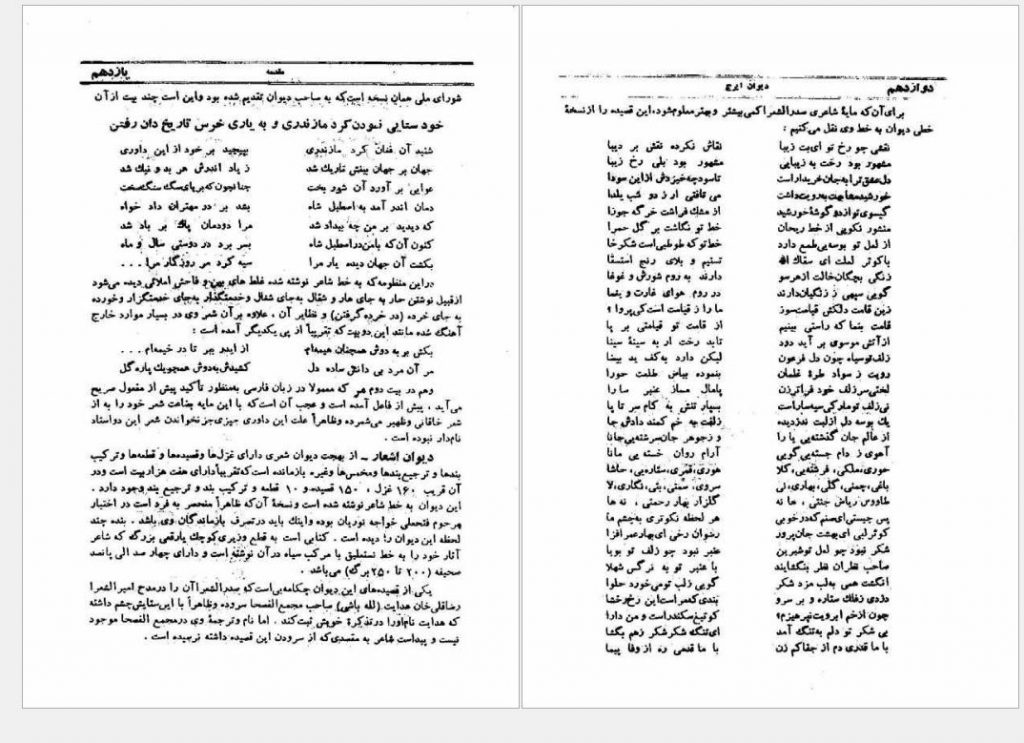 یازدهم مقدمه
شورای ملی همان نسخه است که به صاحب دیوان تقدیم شده بود واین است چند بیت از آن
خود ستایی نمودن کرد مازندری و به یاری خرس تاریخ دان رفتن
شنید آن فغان کرد مازندری بپیچید بر خود از این داوری
جهان بر جهان بینش تاریک شد ز یاد اندرش هر بد و نیک شد
عوایی بر آورد آن شور بخت چنانچون که بر پای سگ سنگ سخت
دمان اندر آمد به اصطبل شاه بشد بر در مهتران داد خواه
که دیدید بر من چه بیداد شد مرا دودمان پاک بر باد شد
کنون آن که بامن در اصطبل شاه بسر برد در دوستی سال و ماه
بکشت آن جهان دیده یار مرا سیه کرد مر روزگار مرا . . .
در این منظومه که به خط شاعر نوشته شده غلط های بین و فاحش املائی دیده می‌شود
از قبیل نوشتن حار به جای هار و شقال به‌جای شغال وخدمتگذار به‌جای خدمتگزار وخورده
به جای خرده (در خرده گرفتن) و نظایر آن ، علاوه بر آن شعر وی در بسیار موارد خارج
آهنگ شده مانند این دو بیت که تقریباً از پی یکدیگر آمده است :
بکش بر به دوش همچنان هیمه‌ام از ایدو ببر تا در خیمه‌ام . . .
مر آن مرد بی دانش ساده دل کشیدش به‌دوش همچویک پاره گل
وهم در بیت دوم مر که معمولا در زبان فارسی به‌منظور تأکید پیش از مفعول صریح
می‌آید ، پیش از فاعل آمده است و عجب آن است که با این مایه بضاعت شعر خود را به از
شعر خاقانی وظهیر می‌شمرده وظاهراً علت این داوری چیزی جز نخواندن شعر این دو استاد
نام‌دار نبوده است .
دیوان اشعار ــ از بهجت دیوان شعری دارای غزل‌ها وقصیده‌ها و قطعه‌ها وترکیب
بندها و ترجیع بندها ومخمس‌ها وغیره بازمانده است که تقریباً دارای هفت هزار بیت است ودر
آن قریب ۱۶۰ غزل ، ۱۵۰ قصیده و ۱۰ قطعه و ترکیب بند وترجیع بند وجود دارد .
این دیوان به خط شاعر نوشته شده است و نسخهٔ آن که ظاهراً منحصر به فرد است در اختیار
مرحوم فتحعلی خواجه نوریان بوده و اینک باید در تصرف بازماندگان وی باشد . بنده چند
لحظه این دیوان را دیده است . کتابی است به قطع وزیری کوچک یا رقعی بزرگ که شاعر
آثار خود را به خط نستعلیق با مرکب سیاه در آن نوشته است و دارای چهار صد الی پانصد
صحیفه (۲۰۰ تا ۲۵۰ برگه) می‌باشد .
یکی از قصیده‌های این دیوان چکامه‌یی است که صدرالشعرا آن را در مدح امیرالشعرا
رضاقلی خان هدایت (لله باشی) صاحب مجمع‌الفصحا سروده وظاهراً با این ستایش چشم داشته
که هدایت نام اورا در تذکرهٔ خویش ثبت کند . اما نام وترجمهٔ وی در مجمع الفصحا موجود
نیست و پیداست شاعر به مقصدی که از سرودن این قصیده داشته نرسیده است .
دوازدهم دیوان ایرج
برای آن که مایهٔ شاعری صدرالشعرا کمی بیشتر و بهتر معلوم شود، این قصیده را از نسخهٔ
خطی دیوان به خط وی نقل می‌کنیم :
نقشی چو رخ تو ای بت زیبا نقاش نکرده نقش بر دیبا
مشهور بود رخت به زیبایی مشهور بود بلی رخ زیبا
دل عشق ترا به جان خریدار است تا سود چه خیزدش از این سودا
خورشید مشابهت به رویت داشت می تافتی ار ز دو شب یلدا
گیسوی تو از دو گوشهٔ خورشید از مشک فراشت خرگه جوزا
منشور نکویی از خط ریحان خط تو نگاشت بر گل حمرا
از لعل تو بوسه‌یی طمع دارد خط تو که طوطیی است شکرخا
یا کوثر لعلت ای سقاک الله تسنیم و بلای رنج استسقا
زنگی بچگان خالت از هر سو دارند به روم شورش و غوغا
گویی سپهی ز زنگیان دارند در روم هوای غارت و یغما
زین قامت دلکش قیامت سوز ما را ز قیامت است کی پروا ؟
قامت بنما که راستی بینیم از قامت تو قیامتی بر پا
از آتش موسوی بر آید دود تابد رخت ار به سینهٔ سینا
زلف تو سیاه چون دل فرعون لیکن دارد به کف ید بیضا
رویت ز سواد طرهٔ غلمان بنموده بیاض طلعت حورا
لختی سر زلف خود فراتر زن پامال مساز عنبر سا را
نی زلف تو مار کی سیه سار است بسپار تنش به کام سر تا پا
یک بوسه دل از لبت ندزدیده زلفت به خم کمند دادش جا
از عالم جان گذشته‌یی پا را و زجوهر جان سرشته‌یی جانا
آهوی ز دام جسته‌یی گویی آرام روان خسته یی مانا
حوری، ملکی، فرشته‌یی، کلا هوری، قمری، ستاره‌یی، حاشا
باغی، چمنی، گلی، بهاری، نی سروی، سمنی، بتی، نگاری، لا
طاووس ریاض جنتی ، ها نه گلزار بهار رحمتی ، نه ها
پس چیستی ای صنم که در خوبی هر لحظه نکوتری به چشم ما
کوثر لبی ای بهشت جان پرور رضوان رخی ای بهار عمر افزا
شکر نبود چو لعل تو شیرین عنبر نبود چو زلف تو بویا
صاحب نظران نظر بنگشایند با عنبر تو به نرگس شهلا
انگشت همی به‌لب مزد شکر گویی زلب تو می‌خورد حلوا
دزدی زفلک ستاره و بر سر و بندی کمر است این رخ رخشا
چون از خم ابرویت نپرهیزم؟ کو تیغ سکندر است و من دارا
بی شکر تو دلم به تنگ آمد ای تنگ شکر شکر زهم بگشا
با ما قدری دم از جفا کم زن با ما قدمی ره از وفا پیما